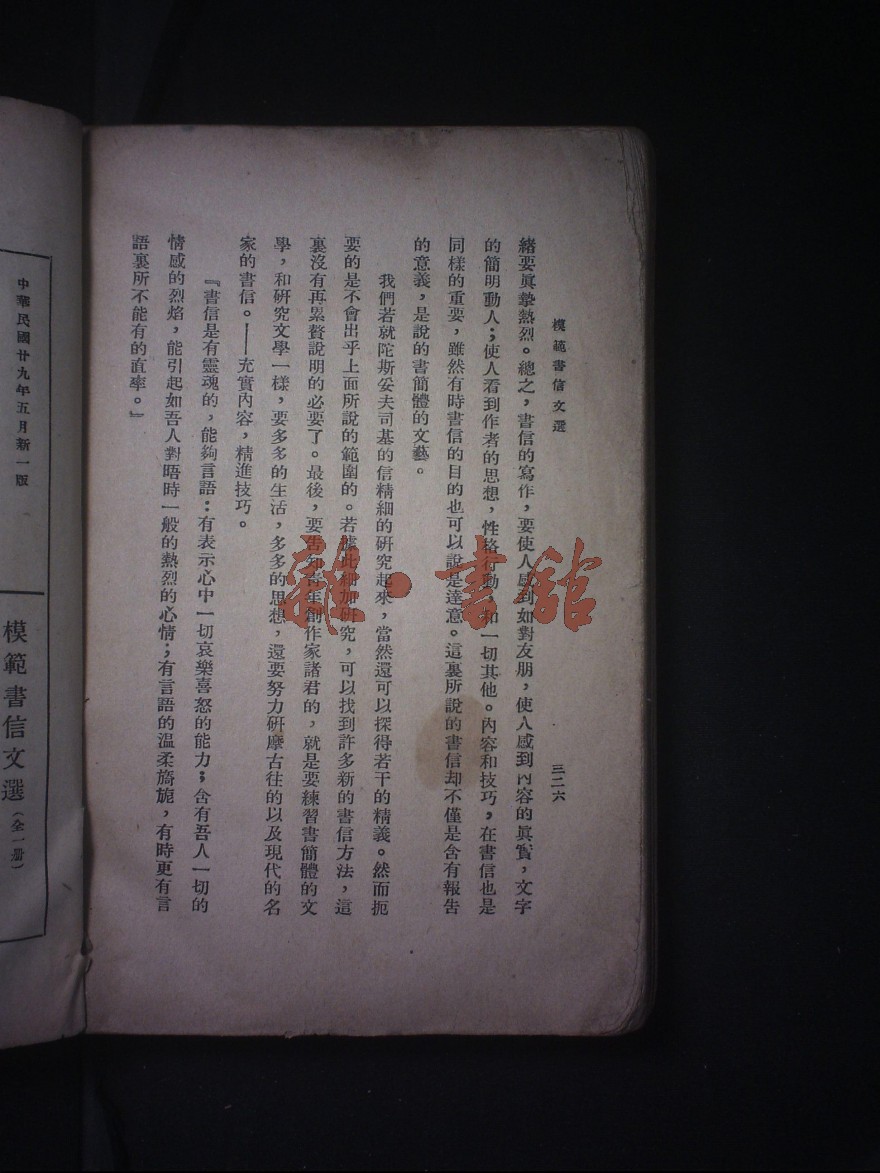 模範書信文選
三二六
緒要眞摯熱烈。總之，書信的寫作，要使人感到如對友朋，使人感到內容的眞實，文字
的簡明動人；使人看到作者的思想，性格行動，和一切其他。內容和技巧，在書信也是
同樣的重要，雖然有時書信的目的也可以說是達意。這裏所說的書信却不僅是含有報吿
的意義，是說的書簡體的文藝。
我們若就陀斯妥夫司基的信精細的研究起來，當然還可以探得若干的精義。然而扼
要的是不會出乎上面所說的範圍的。若據此細加研究，可以找到許多新的書信方法，這
裏沒有再累贅說明的必要了。最後，要吿知靑年創作家諸君的，就是要練習書簡體的文
學，和研究文學一樣，要多多的生活，多多的思想，還要努力研摩古往的以及現代的名
家的書信。——充實內容，精進技巧。
『書信是有靈魂的，能夠言語：有表示心中一切哀樂喜怒的能力；含有吾人一切的
情感的烈焰，能引起如吾人對晤時一般的熱烈的心情；有言語的溫柔旖旎，有時更有言
語裏所不能有的直率。』
中華民國廿九年五月新一版
模範書信文選（全一册）
雜·書館